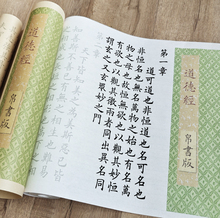 道德經
帛書版
第一章
道可道也非恒道也名可名也
非恒名也無名萬物之始也有名萬
物之母也故恒無欲也以觀其妙恒
有欲也以觀其徼兩者同出異名同
謂玄之又玄眾妙之門
道德經
帛書版